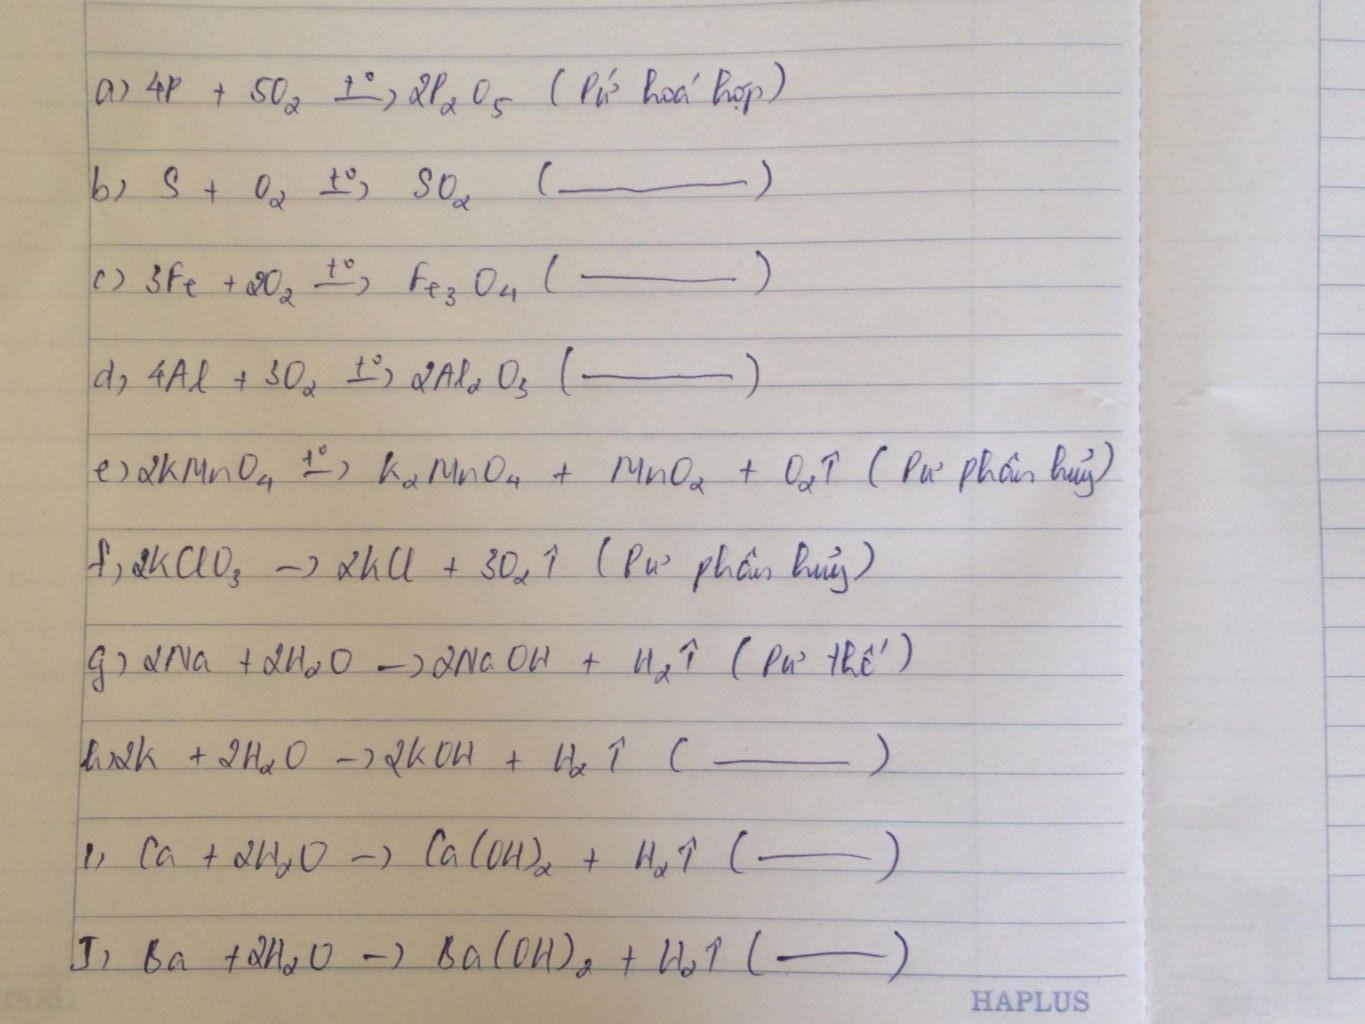 a) 4P + 5O₂ t°→ 2P₂O₅ (Pứ hoá hợp)
b) S + O₂ t°→ SO₂ (———)
c) 3Fe + 2O₂ t°→ Fe₃O₄ (———)
d) 4Al + 3O₂ t°→ 2Al₂O₃ (———)
e) 2KMnO₄ t°→ K₂MnO₄ + MnO₂ + O₂↑ (Pư phân huỷ)
f) 2KClO₃ → 2KCl + 3O₂↑ (Pư phân huỷ)
g) 2Na + 2H₂O → 2NaOH + H₂↑ (Pư thế)
h) 2K + 2H₂O → 2KOH + H₂↑ (———)
i) Ca + 2H₂O → Ca(OH)₂ + H₂↑ (———)
J) Ba + 2H₂O → Ba(OH)₂ + H₂↑ (———)
HAPLUS